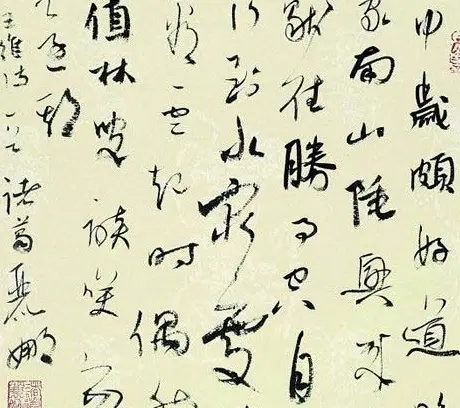 中歲頗好道
家南山陲興來
獨往勝事空自
行到水窮處
看雲起時偶然
值林叟談笑
還期
王維詩一首諸葛麗娜